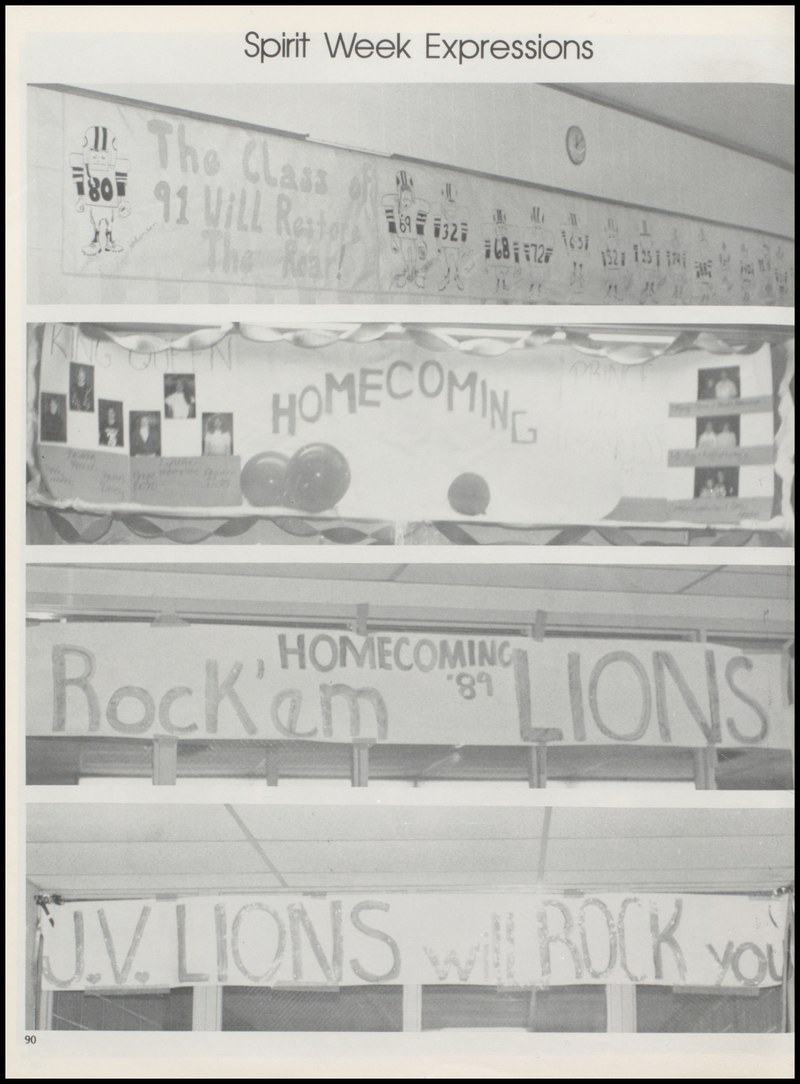 Spirit Week Expressions
80
The Class of
91 Will Restore
The Roar!
69
32
68
72
52
KING QUEEN
HOMECOMING
PRINCE
HOMECOMING
'89
Rock'em LIONS
J.V. LIONS will ROCK you
90